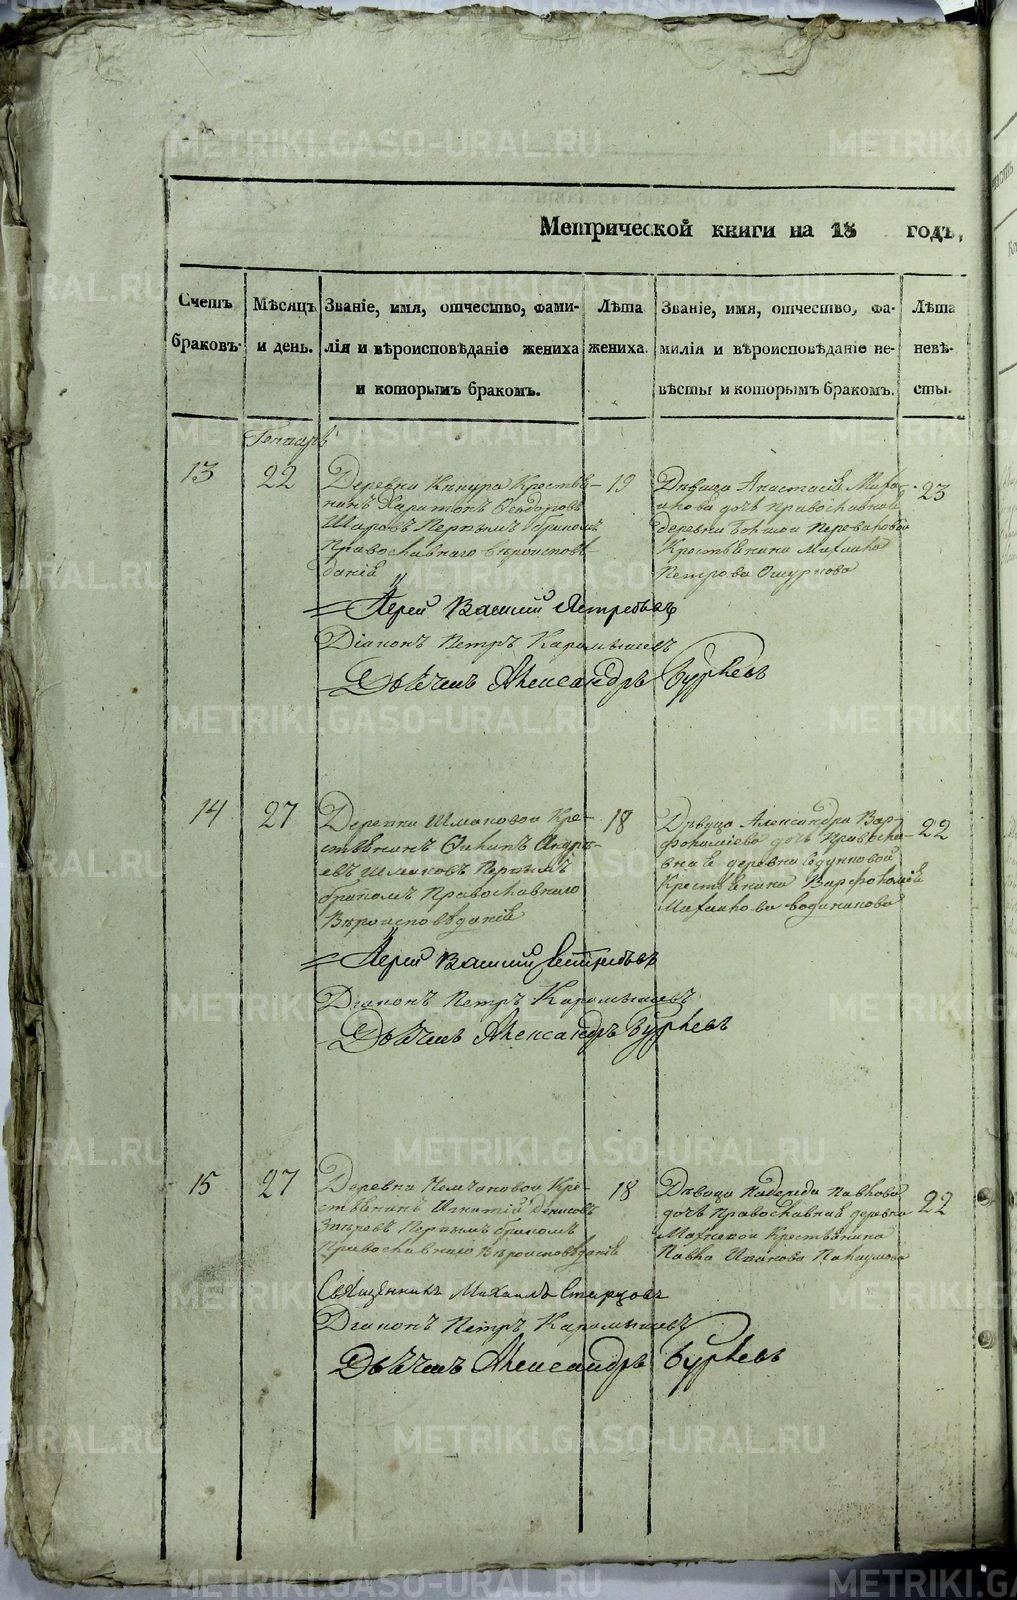 METRIKI.GASO-URAL.RU
Метрической книги на 18 годъ,
Счетъ браковъ.
Мѣсяцъ и день.
Званіе, имя, отчество, фами-
лія и вѣроисповѣданіе жениха
и которымъ бракомъ.
Лѣта жениха.
Званіе, имя, отчество, фа-
милія и вѣроисповѣданіе не-
вѣсты и которымъ бракомъ.
Лѣта невѣ-
сты.
Генварь
13
22
Деревни Крестья-
нинъ Харитонъ Ѳеодоровъ
Шаровъ Первымъ бракомъ
Православнаго вѣроисповѣ-
даній
19
Дѣвица Анастасія Миха-
илова дочь православнаѣ
деревни
Крестьянина Михаила
Петрова Ошуркова
23
Іерей Василій Ястребовъ
Діаконъ Петръ Карамышевъ
Дьячекъ Александръ Бурлевъ
14
27
Деревни Шмаковой Кре-
стьянинъ Филипъ Андрѣ-
евъ Шмаковъ Первымъ
бракомъ Православнаго
Вѣроисповѣданій
18
Дѣвица Александра Вар-
фоломѣева дочь Правосла-
внаѣ деревни
Крестьянина Варфоломѣй
Михаилова
22
Іерей Василій Ястребовъ
Діаконъ Петръ Карамышевъ
Дьячекъ Александръ Бурлевъ
15
27
Деревни Кре-
стьянинъ Игнатій Денисовъ
Первымъ бракомъ
Православнаго вѣроисповѣданія
18
Дѣвица Надежда Павлова
дочь Православнаѣ деревни
Махневой Крестьянина
Павла Иванова
22
Священникъ Михаилъ Старцовъ
Діаконъ Петръ Карамышевъ
Дьячекъ Александръ Бурлевъ